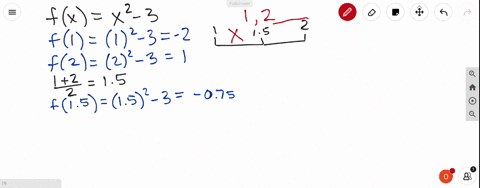 f(x) = x² - 3
f(1) = (1)² - 3 = -2
f(2) = (2)² - 3 = 1
1+2/2 = 1.5
f(1.5) = (1.5)² - 3 = -0.75
1, 2
1 x 1.5 2